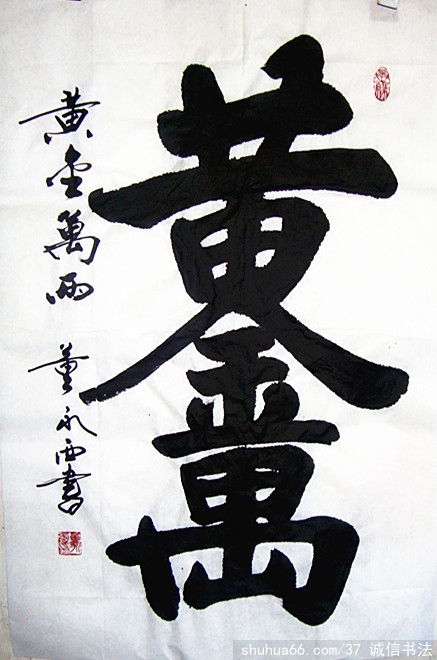 黄金萬兩
黄金萬兩
董永西書
shuhua66.com/37 诚信书法